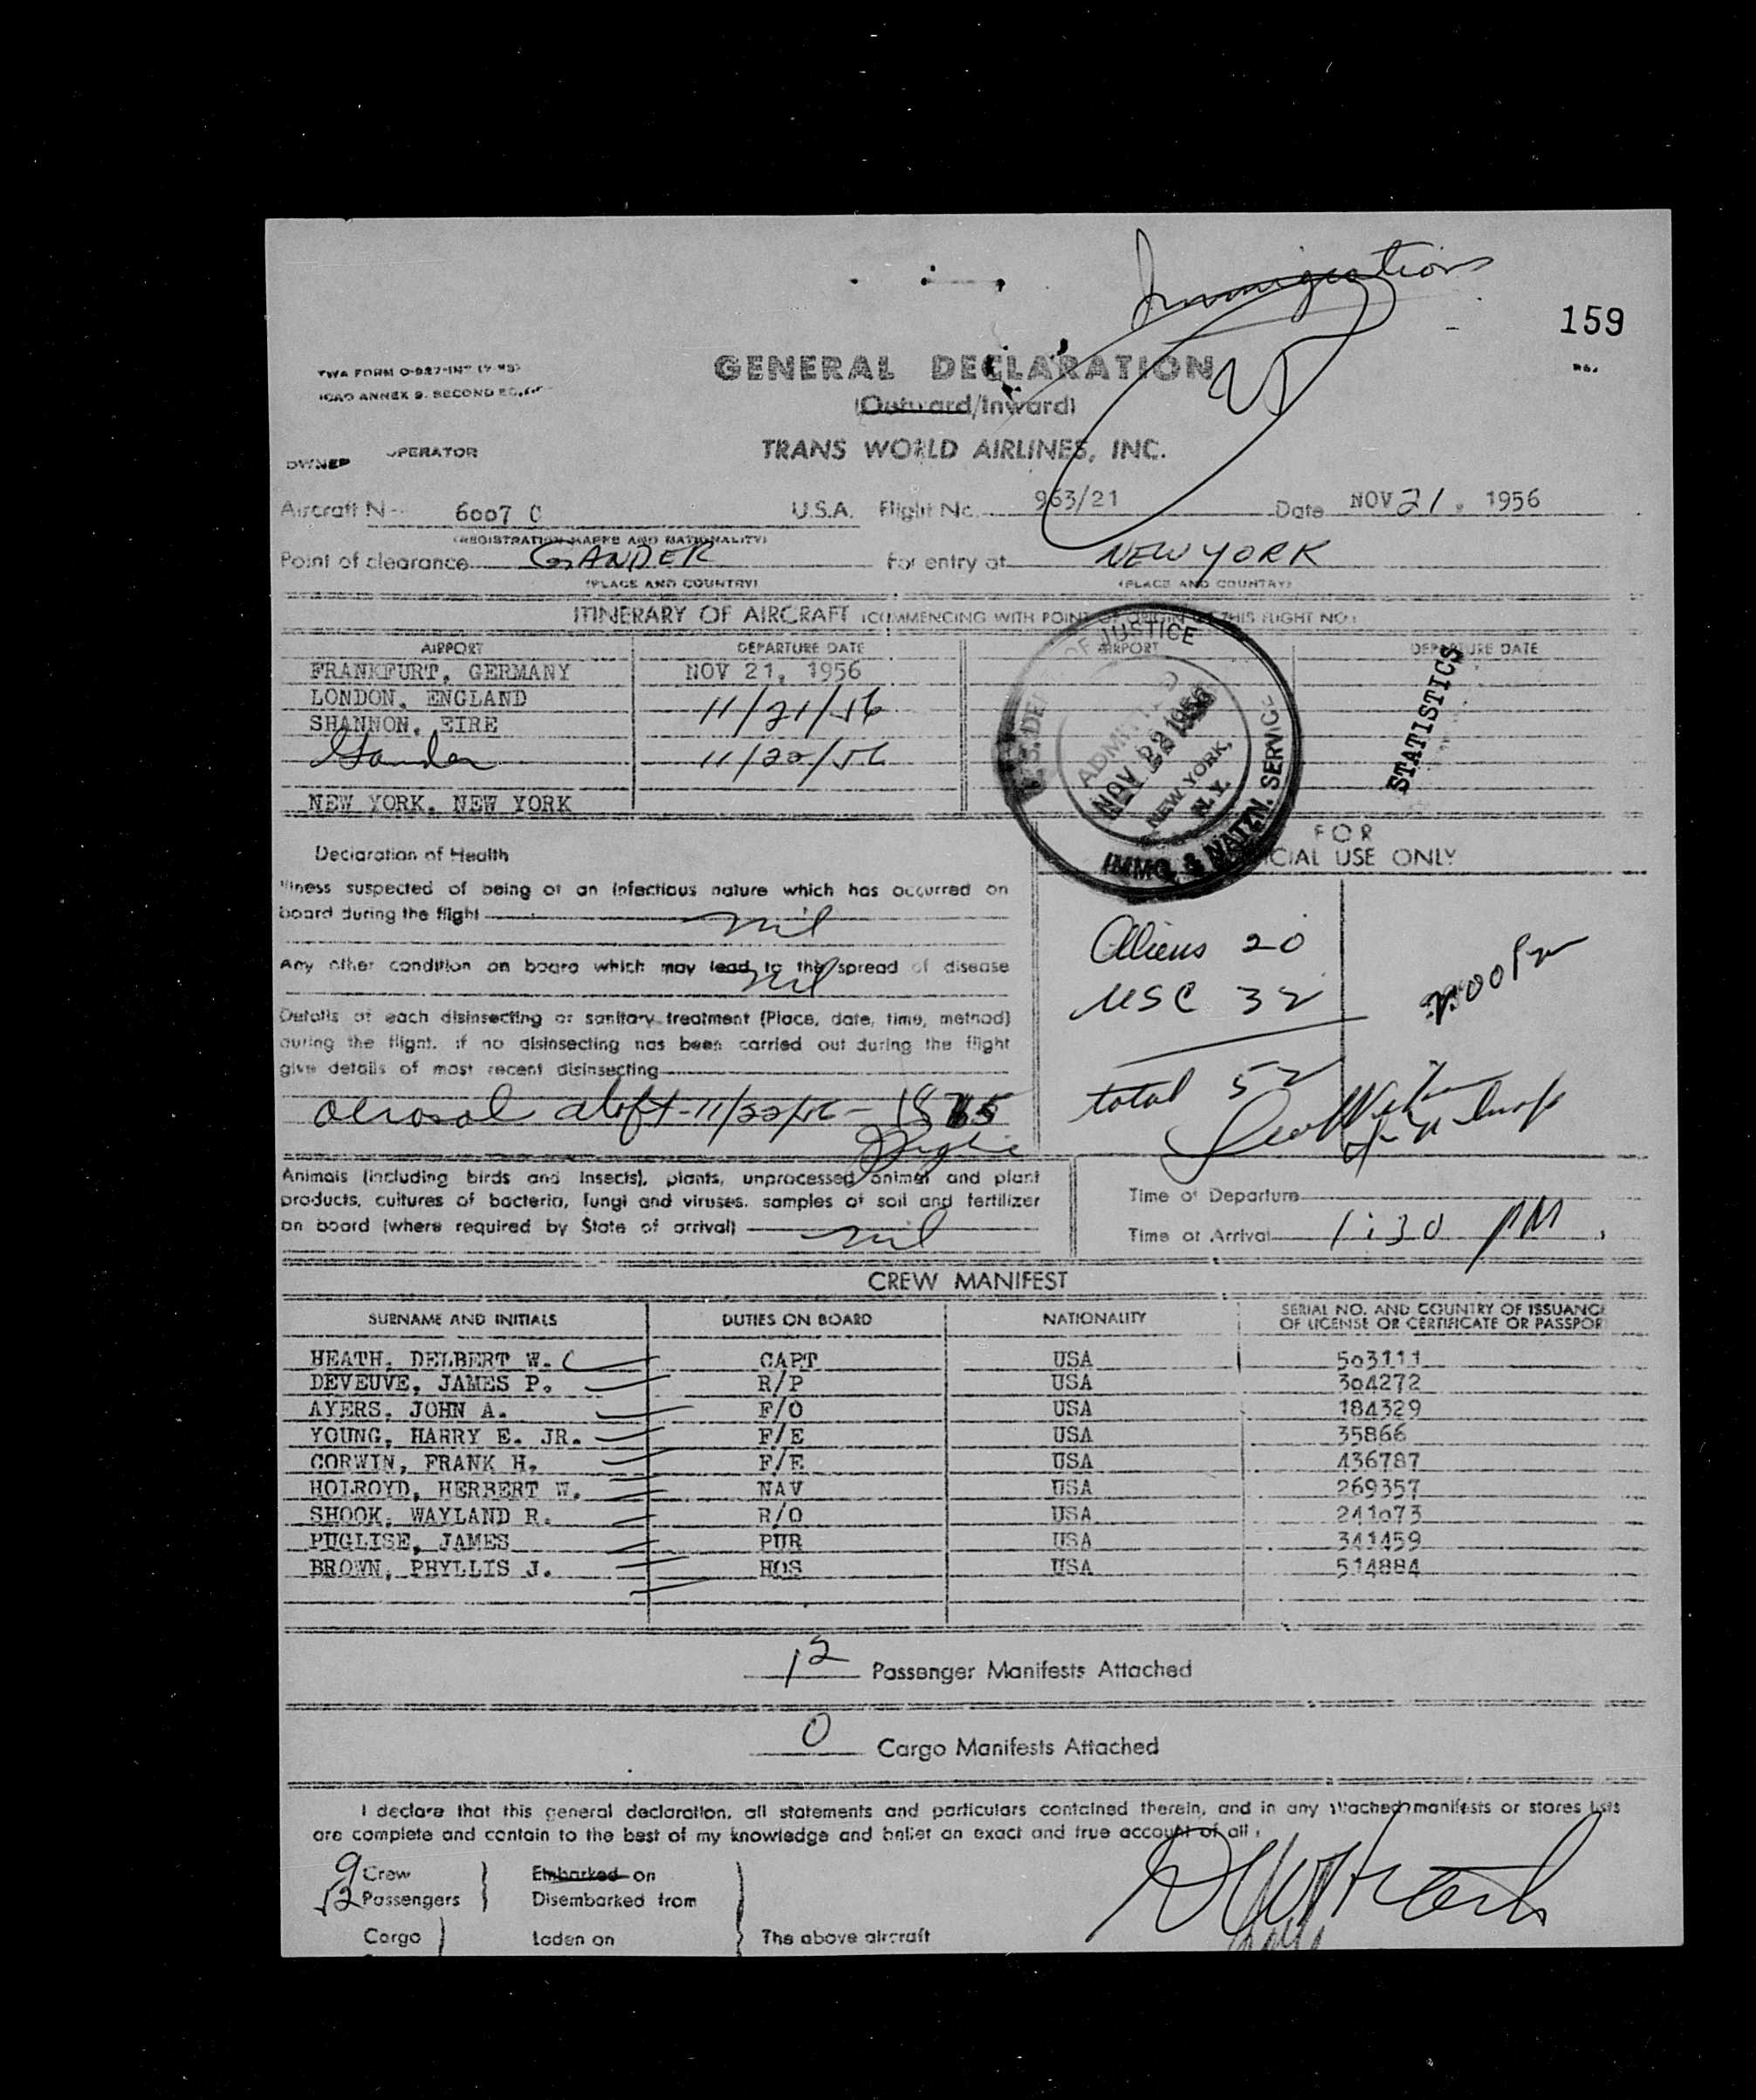 Immigration
159
TWA FORM O-987-INT
ICAO ANNEX 9. SECOND
GENERAL DECLARATION
(Outward/Inward)
OWNER OPERATOR TRANS WORLD AIRLINES, INC.
Aircraft N-- 6007 C U.S.A. Flight No. 963/21 Date NOV 21, 1956
(REGISTRATION MARKS AND NATIONALITY)
Point of clearance GANDER For entry at NEW YORK
(PLACE AND COUNTRY) (PLACE AND COUNTRY)
ITINERARY OF AIRCRAFT (COMMENCING WITH POINT OF ORIGIN OF THIS FLIGHT NO.)
AIRPORT DEPARTURE DATE AIRPORT DEPARTURE DATE
FRANKFURT, GERMANY NOV 21, 1956
LONDON, ENGLAND 11/21/56
SHANNON, EIRE
Gander 11/22/56
NEW YORK, NEW YORK
OF JUSTICE
ADMITTED
NOV 22 1956
NEW YORK,
N.Y.
IMMG. & NATZN. SERVICE
STATISTICS
Declaration of Health
FOR
OFFICIAL USE ONLY
Illness suspected of being of an infectious nature which has occurred on
board during the flight nil
Any other condition on board which may lead to the spread of disease
nil
Details of each disinsecting or sanitary treatment (Place, date, time, method)
during the flight. If no disinsecting has been carried out during the flight
give details of most recent disinsecting
aerosol aloft - 11/22/56 -
Aliens 20
USC 32
total 52
2:00 Pm
Animals (including birds and insects), plants, unprocessed animal and plant
products, cultures of bacteria, fungi and viruses, samples of soil and fertilizer
on board (where required by State of arrival) nil
Time of Departure
Time of Arrival 1:30 PM.
CREW MANIFEST
SURNAME AND INITIALS DUTIES ON BOARD NATIONALITY SERIAL NO. AND COUNTRY OF ISSUANCE
OF LICENSE OR CERTIFICATE OR PASSPOR
HEATH, DELBERT W. CAPT USA 503111
DEVEUVE, JAMES P. R/P USA 304272
AYERS, JOHN A. F/O USA 184329
YOUNG, HARRY E. JR. F/E USA 35866
CORWIN, FRANK H. F/E USA 436787
HOLROYD, HERBERT W. NAV USA 269357
SHOOK, WAYLAND R. R/O USA 241073
PUGLISE, JAMES PUR USA 341459
BROWN, PHYLLIS J. HOS USA 514884
12 Passenger Manifests Attached
0 Cargo Manifests Attached
I declare that this general declaration, all statements and particulars contained therein, and in any attached manifests or stores lists
are complete and contain to the best of my knowledge and belief an exact and true account of all.
9 Crew Embarked on
52 Passengers Disembarked from
Cargo Laden on The above aircraft